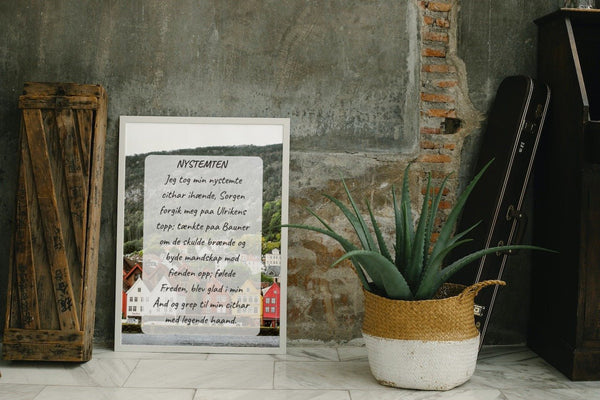 NYSTEMTEN
Jeg tog min nystemte
cithar ihænde, Sorgen
forgik meg paa Ulrikens
topp; tænkte paa Bauner
om de skulde brænde og
byde mandskap mod
fienden opp; følede
Freden, blev glad i min
And og grep til min cithar
med legende haand.